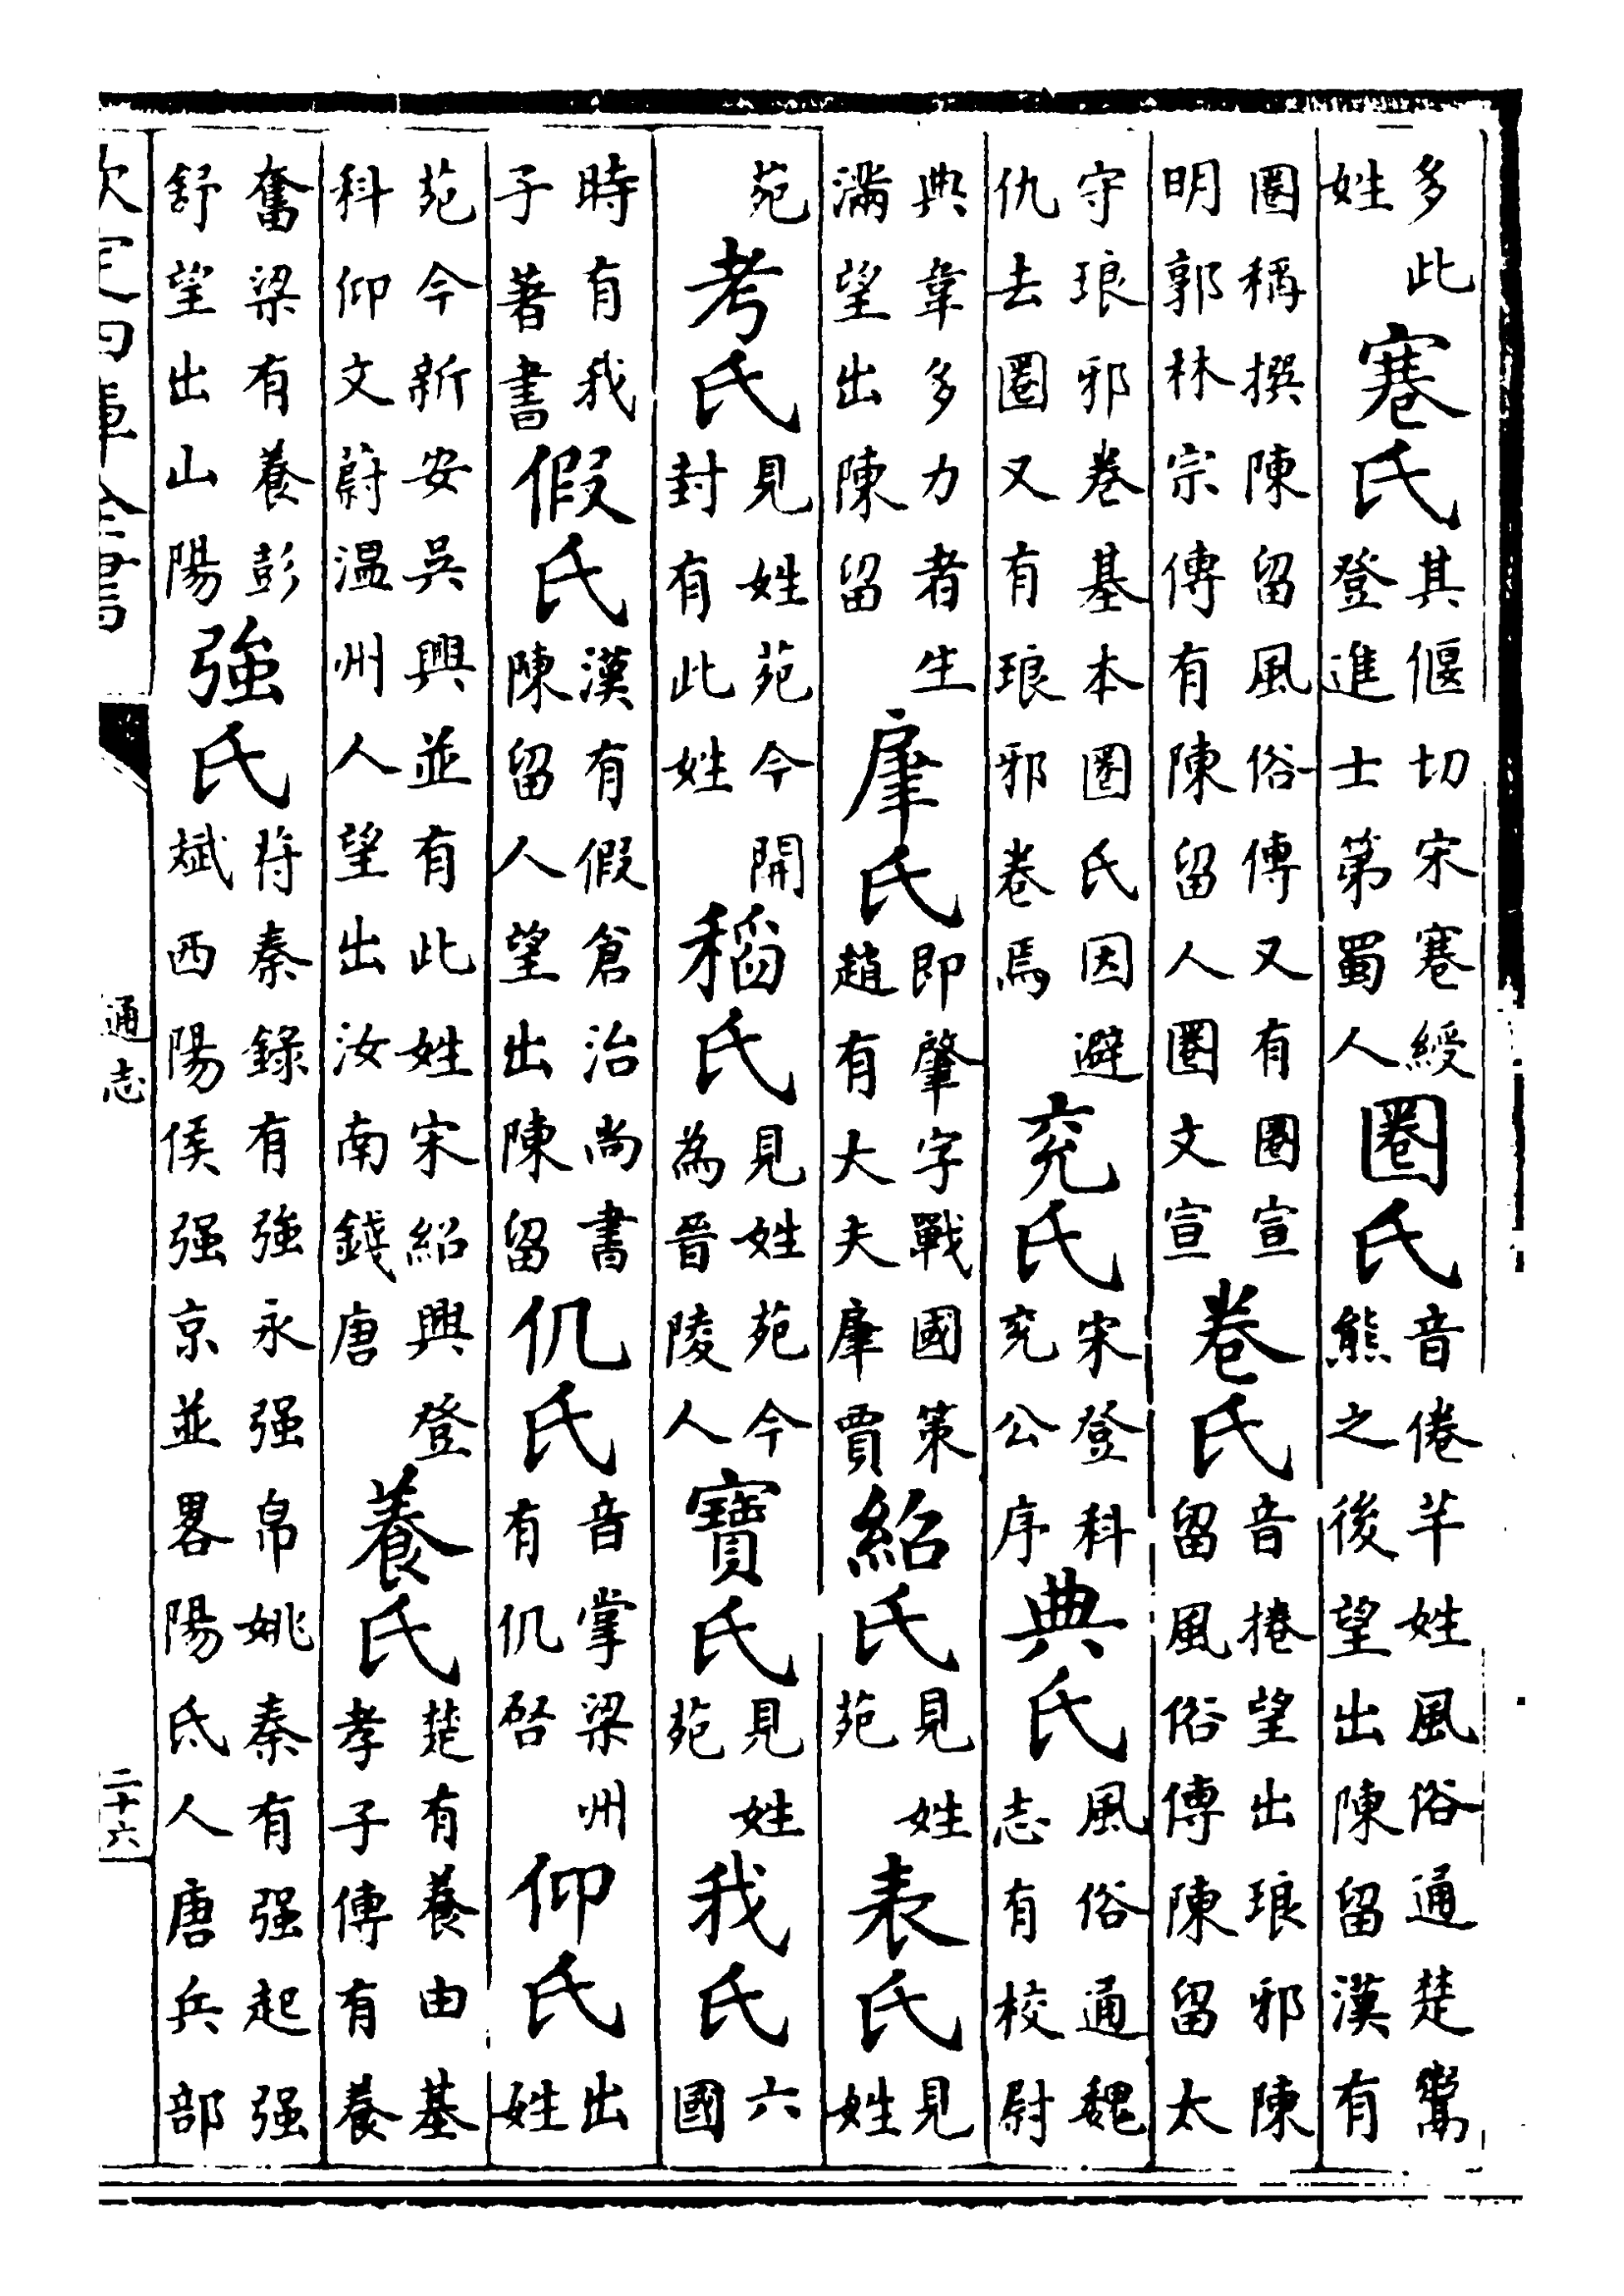 多此姓寋氏其偃切宋寋綬登進士第蜀人圈氏音倦芊姓風俗通楚鬻熊之後望出陳留漢有
圈稱撰陳留風俗傳又有圈宣明郭林宗傳有陳留人圈文宣卷氏音捲望出琅邪陳留風俗傳陳留太
守琅邪卷基本圈氏因避仇去圈又有琅邪卷焉兖氏宋登科兖公序典氏風俗通魏志有校尉
典韋多力者生滿望出陳留肈氏即肇字戰國策趙有大夫肈賈紹氏見姓苑表氏見姓
苑考氏見姓苑今開封有此姓稻氏見姓苑今為晉陵人寶氏見姓苑我氏六國
時有我子著書假氏漢有假倉治尚書陳留人望出陳留仉氏音掌梁州有仉啓仰氏出姓
苑今新安吳興並有此姓宋紹興登科仰文蔚温州人望出汝南錢唐養氏楚有養由基孝子傳有養
奮梁有養彭舒望出山陽強氏苻秦錄有強永强帛姚秦有强起强斌西陽侯强京並畧陽氐人唐兵部
欽定四庫全書
通志
二十六